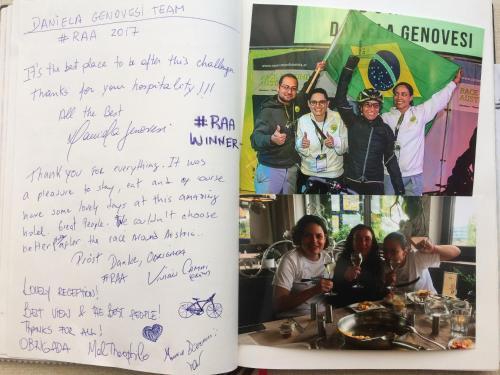 DANIELA GENOVESI TEAM
#RAA 2017
It's the best place to be after this challenge
Thanks for your hospitality!!!
All the Best
Daniela Genovesi
#RAA
WINNER
Thank you for everything. It was
a pleasure to stay, eat and of course
have some lovely days at this amazing
hotel. Great People. We couldn't choose
better after the race around Austria..
Pröst, Danke, Obrigada
#RAA
LOVELY RECEPTION!
BEST VIEW & THE BEST PEOPLE!
THANKS FOR ALL!
OBRIGADA
DANIELA GENOVESI
RACE
AUST